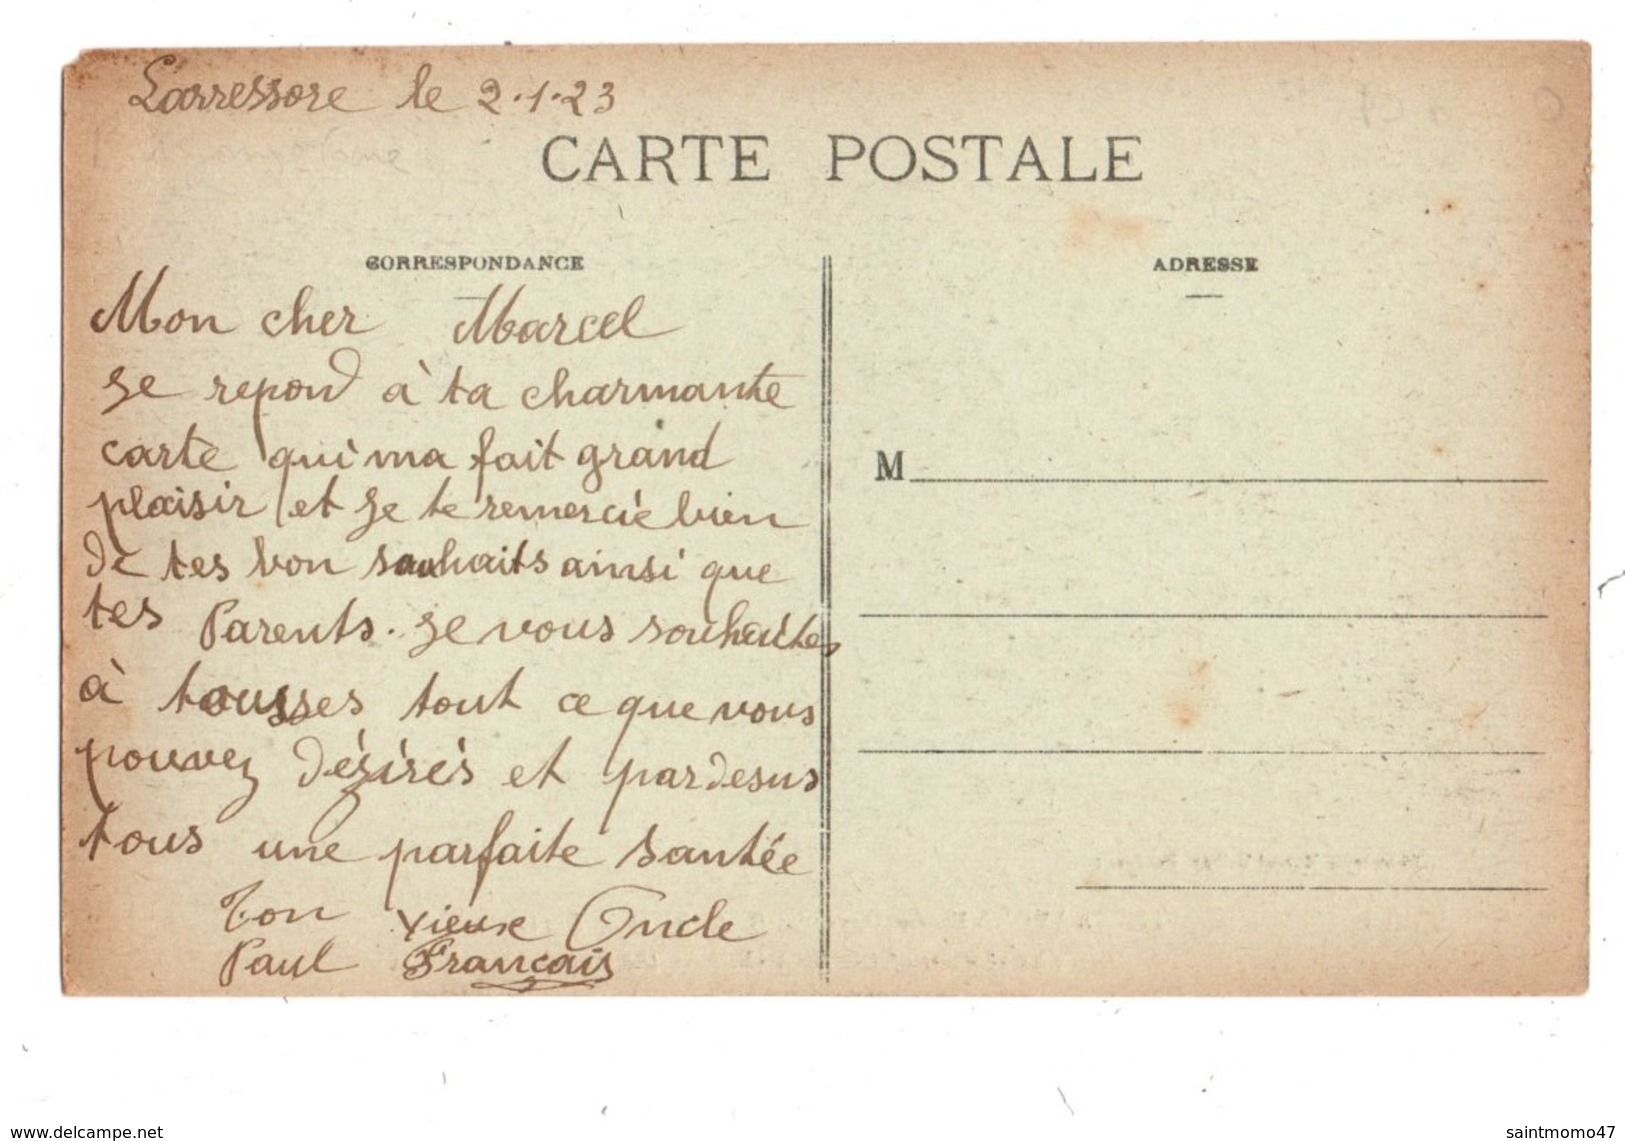 Larressore le 2.1.23
CARTE POSTALE
CORRESPONDANCE
ADRESSE
Mon cher Marcel
Je repond à ta charmante
carte qui ma fait grand
plaisir et je te remercie bien
de tes bon souhaits ainsi que
tes Parents. Je vous souhaites
à tousses tout ce que vous
pouvez désirés et pardesus
tous une parfaite santée
Ton vieux Oncle
Paul Francais
M
www.delcampe.net
saintmomo47